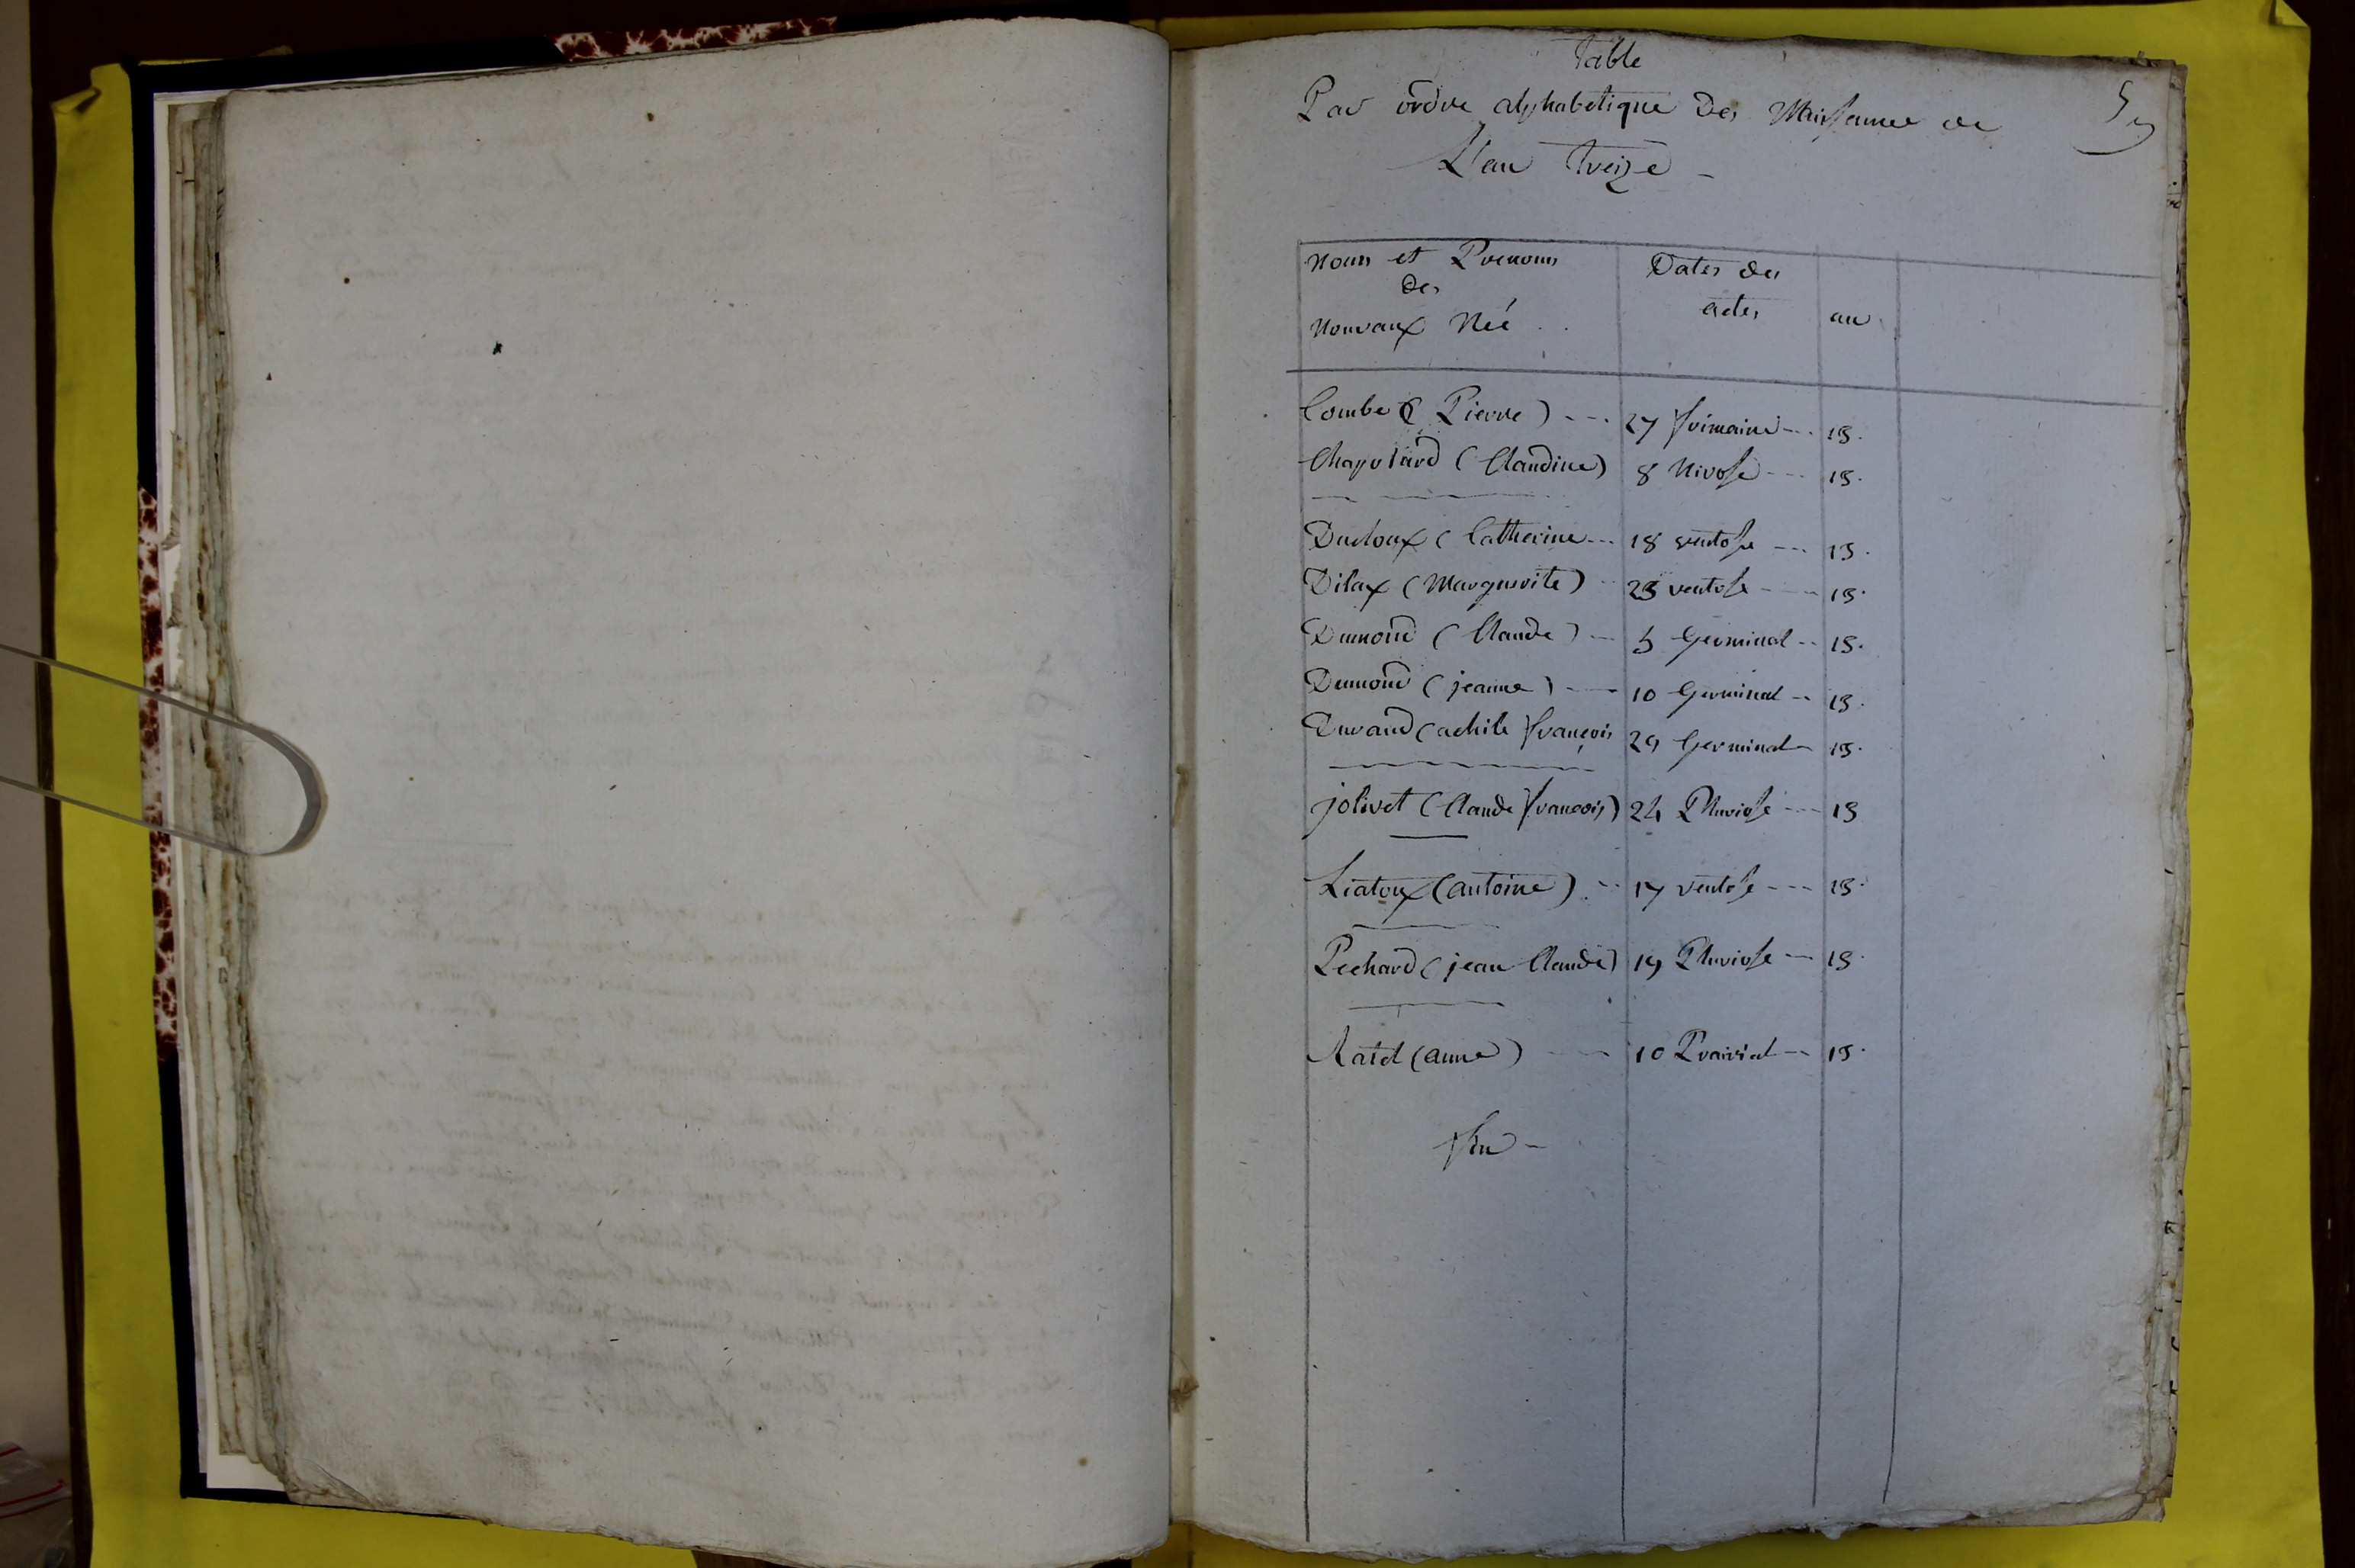 Table
Par ordre alphabetique Des Naissance de
L'an treize
5
noms et Prenoms
Des
nouvaux Née
Dates des
actes
an
Combe (Pierre) --- 27 frimaire --- 13.
Chapolard (Claudine) 8 Nivose --- 13.
Ducloux (Catherine --- 18 ventose --- 13.
Dilax (Marguerite) -- 23 ventose --- 13.
Dumond (Claude) --- 5 Germinal -- 13.
Dumond (jeanne) --- 10 Germinal -- 13.
Durand (achile françois 29 Germinal - 13.
jolivet (Claude françois) 24 Pluviose --- 13
Liatoux (antoine) -- 17 ventose --- 13.
Pechard (jean Claude) 19 Pluviose -- 13.
Ratel (anne) --- 10 Prairial -- 13.
fin -